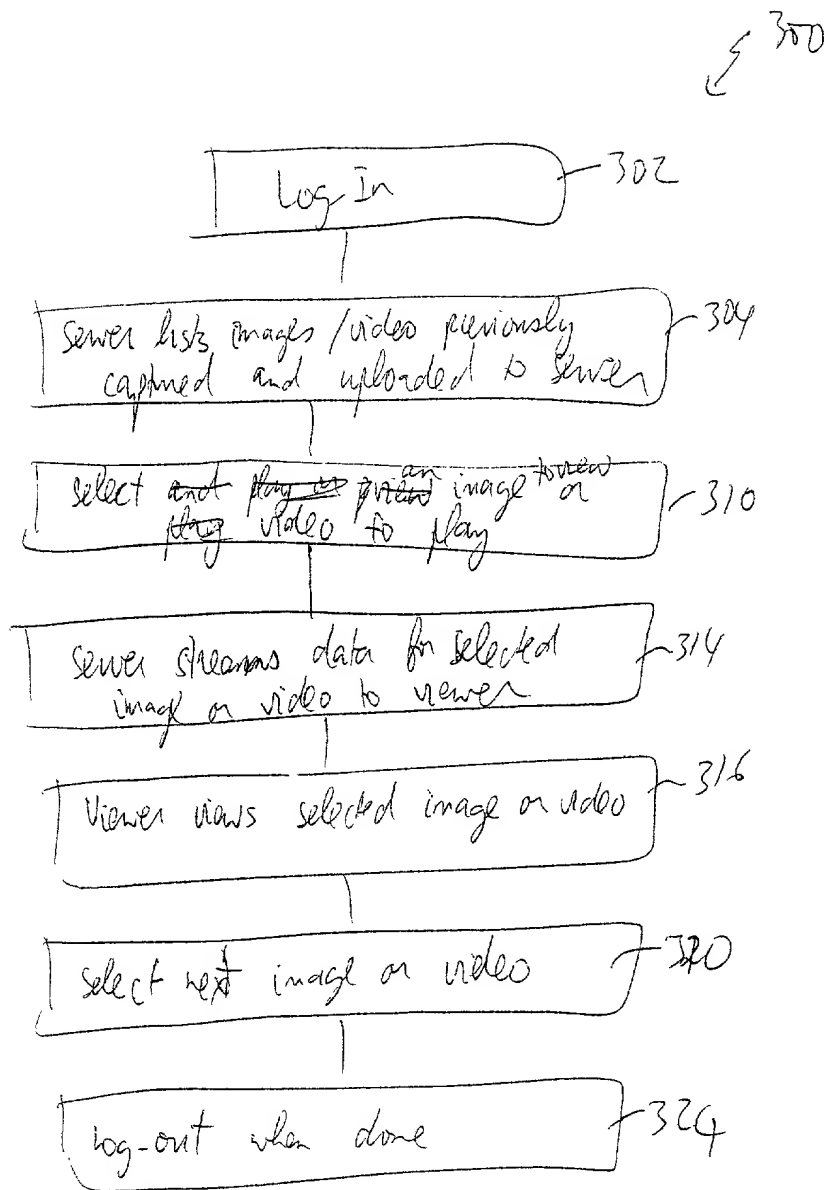 300
Log-In
302
Server lists images/video previously
captured and uploaded to server
304
an to view
select and play or preview image or
play video to play
310
server streams data for selected
image or video to viewer
314
Viewer views selected image or video
316
select next image or video
320
Log-out when done
324